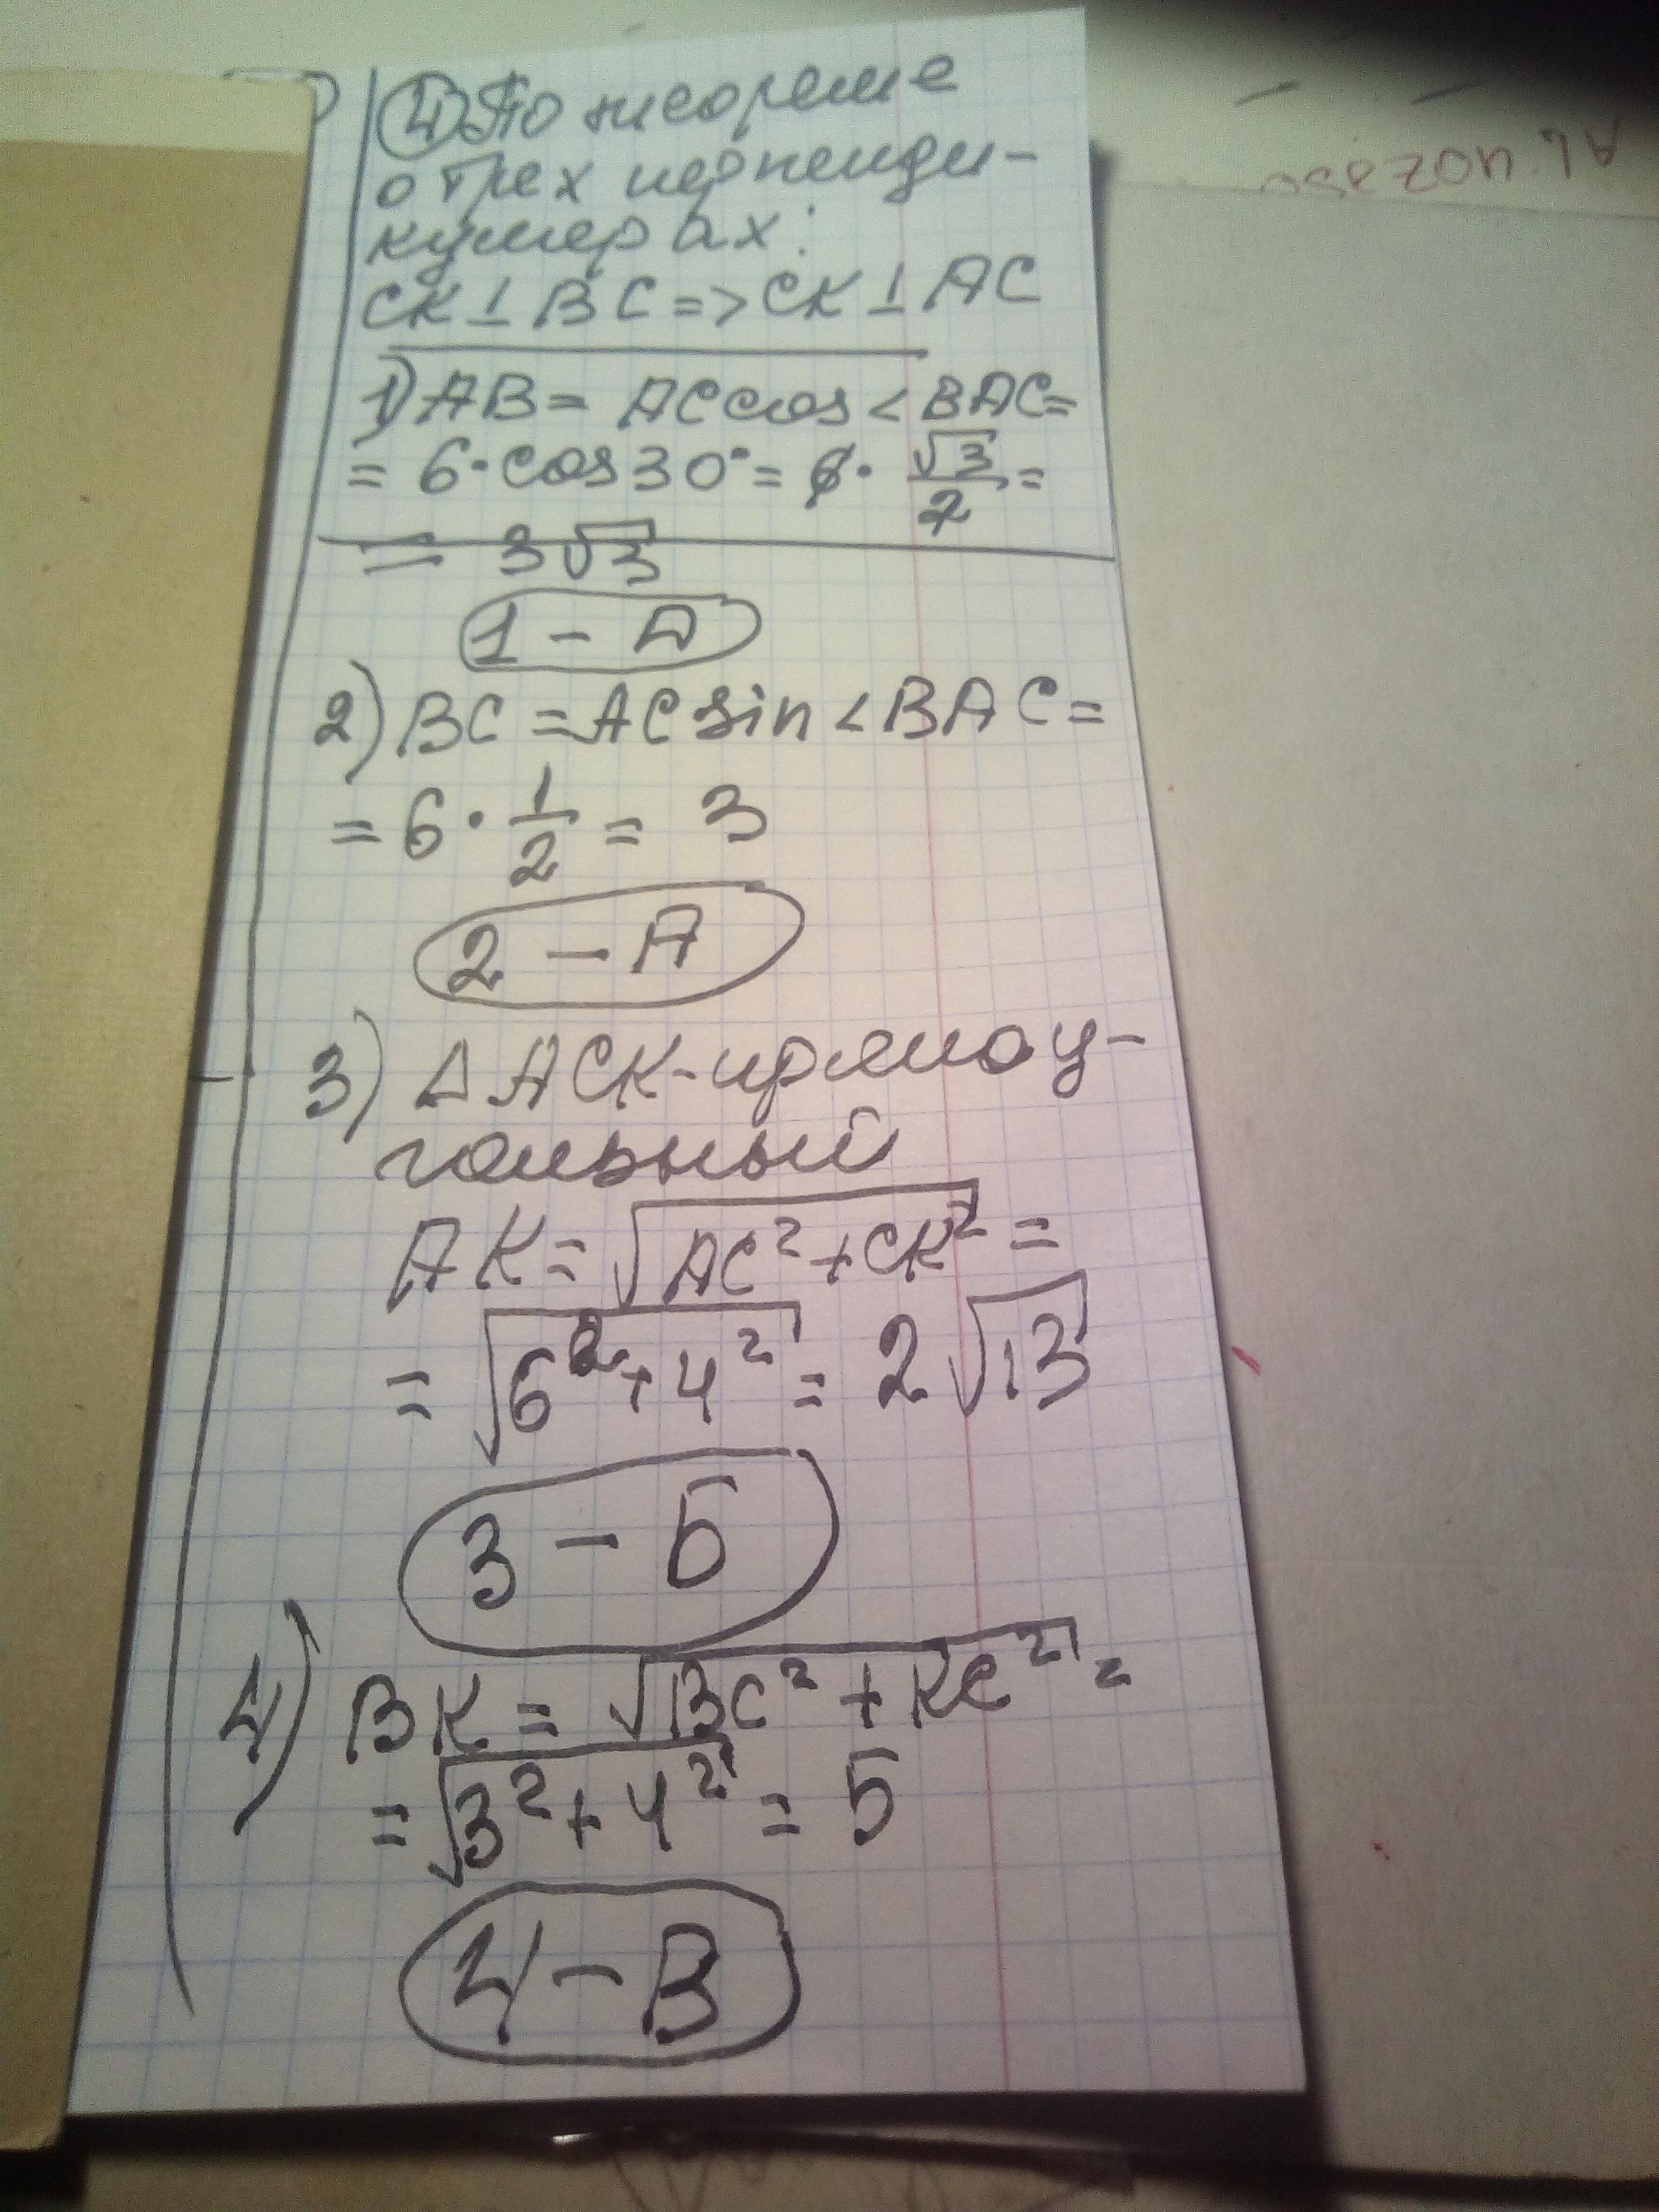 ④ По теореме
о трех перпенди-
кулярах:
CK⊥BC=>CK⊥AC
1) AB = AC cos<BAC=
= 6·cos30°= 6·√3/2=
= 3√3
1 – А
2) BC = AC sin<BAC=
= 6·1/2 = 3
2 – А
3) ΔACK-прямоу-
гольный
AK= √(AC²+CK²) =
= √(6²+4²) = 2√13
3 – Б
4) BK = √(BC²+KC²) =
= √(3²+4²) = 5
4 – В